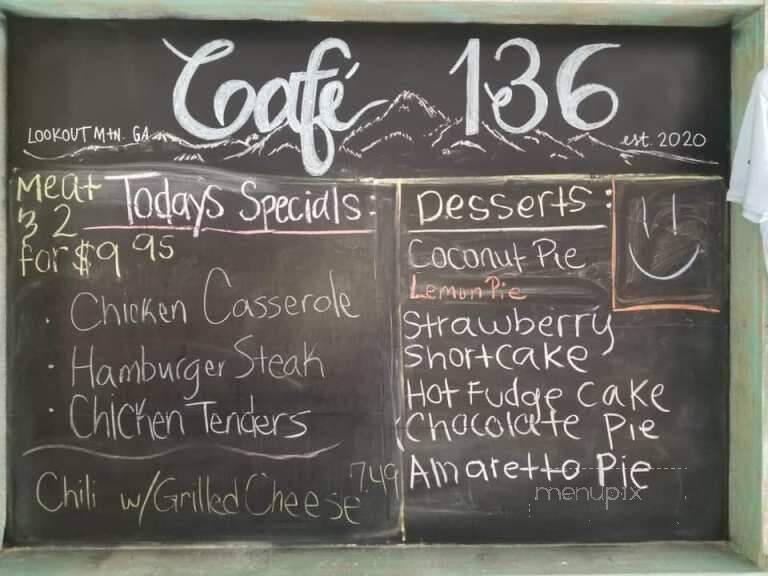 Café 136
LOOKOUT MtN. GA
est. 2020
Meat
3 2
for $9 95
Todays Specials:
· Chicken Casserole
· Hamburger Steak
· Chicken Tenders
Chili w/Grilled Cheese 7.49
Desserts:
Coconut Pie
Lemon Pie
Strawberry
Shortcake
Hot Fudge Cake
Chocolate Pie
Amaretto Pie
menupix